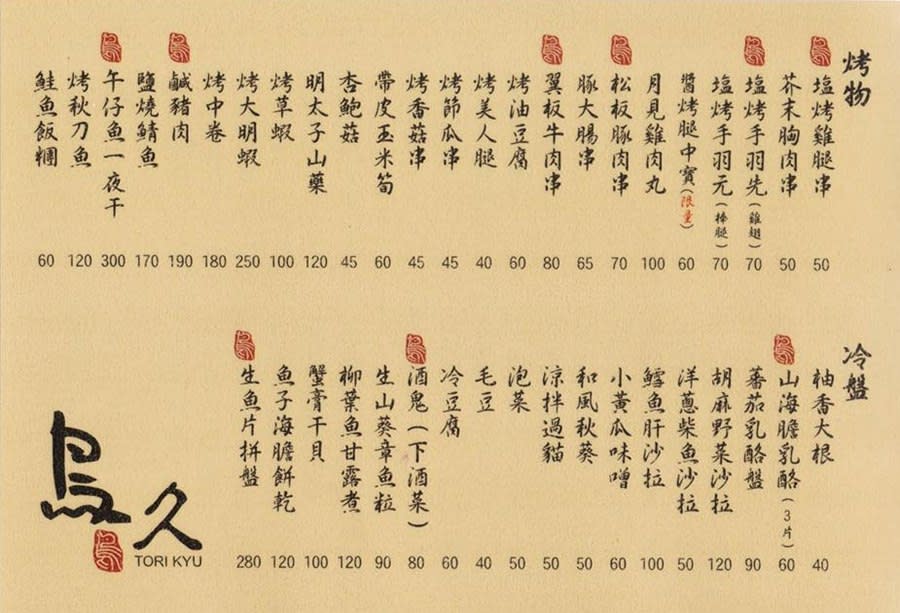 烤物
塩烤雞腿串 50
芥末胸肉串 50
塩烤手羽先(雞翅) 70
塩烤手羽元(棒腿) 70
醬烤腿中寶(限量) 60
月見雞肉丸 100
松板豚肉串 70
豚大腸串 65
翼板牛肉串 80
烤油豆腐 60
烤美人腿 40
烤節瓜串 45
烤香菇串 45
帶皮玉米筍 60
杏鮑菇 45
明太子山藥 120
烤草蝦 100
烤大明蝦 250
烤中卷 180
鹹豬肉 190
鹽燒鯖魚 170
午仔魚一夜干 300
烤秋刀魚 120
鮭魚飯糰 60
冷盤
柚香大根 40
山海膽乳酪(3片) 60
蕃茄乳酪盤 90
胡麻野菜沙拉 120
洋蔥柴魚沙拉 50
鱈魚肝沙拉 100
小黃瓜味噌 60
和風秋葵 50
涼拌過貓 50
泡菜 50
毛豆 40
冷豆腐 60
酒鬼(下酒菜) 80
生山葵章魚粒 90
柳葉魚甘露煮 120
蟹膏干貝 100
魚子海膽餅乾 120
生魚片拼盤 280
鳥久
TORI KYU